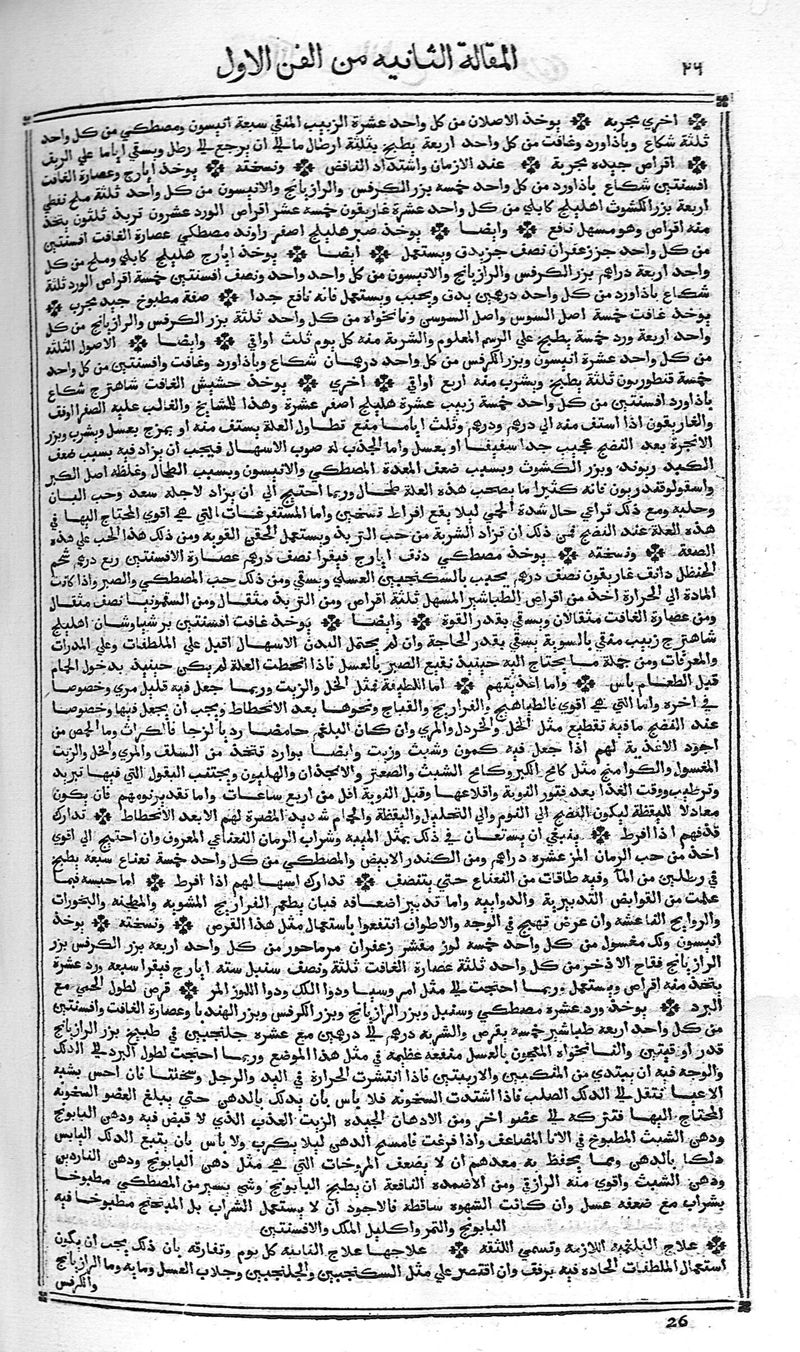 ٢٦ المقالة الثانيه من الفن الاول
اخري مجربة يوخذ الاصلان من كل واحد عشرة الزبيب المنقي سبعة انيسون ومصطكي من كل واحد
ثلثة شكاع وباذاورد وغافت من كل واحد اربعة يطبخ بثلثة ارطال ما الي ان يرجع الي رطل ويسقي اياما علي الريف
اقراص جيده مجربة عند الازمان واشتداد النافض ونسخته يوخذ ايارج وعصارة الغافت
افسنتين شكاع باذاورد من كل واحد خمسة بزر الكرفس والرازيانج والانيسون من كل واحد ثلثة ملح نفطي
اربعة بزر الكشوث اهليلج كابلي من كل واحد عشرة غاريقون خمسه عشر اقراص الورد عشرون تربد ثلثون يتخذ
منه اقراص وهو مسهل نافع وايضا يوخذ صبر هليلج اصفر راوند مصطكي عصارة الغافت افسنتين
من كل واحد جزء زعفران نصف جزء يدق ويستعمل ايضا يوخذ ايارج هليلج كابلي وملح من كل
واحد اربعة دراهم بزر الكرفس والرازيانج والانيسون من كل واحد واحد ونصف افسنتين خمسة اقراص الورد ثلثة
شكاع باذاورد من كل واحد درهمين يدق ويحبب ويستعمل فانه نافع جدا صفة مطبوخ جيد مجرب
يوخذ غافت خمسة اصل السوس واصل السوسن ونانخواه من كل واحد ثلثة بزر الكرفس والرازيانج من كل
واحد اربعة ورد خمسة يطبخ علي الرسم المعلوم والشربة منه كل يوم ثلث اواقي وايضا الاصول الثلثة
من كل واحد عشرة انيسون وبزر الكرفس من كل واحد درهمان شكاع وباذاورد وغافت وافسنتين من كل واحد
خمسة قنطوريون ثلثة يطبخ ويشرب منه اربع اواقي اخري يوخذ حشيش الغافت شاهترج شكاع
باذاورد افسنتين من كل واحد خمسة زبيب عشرة هليلج اصفر عشرة وهذا للمشايخ والغالب عليه الصفرا اوفف
والغاريقون اذا استف منه الي درهم ودرهم وثلث اياما منع تطاول العلة يستف منه او يمزج بعسل ويشرب وبزر
الانجرة بعد النضج عجيب جدا سفيفا او بعسل واما الجذب له صوب الاسهال فيجب ان يزاد فيه بسبب ضعف
الكبد ريوند وبزر الكشوث وبسبب ضعف المعدة المصطكي والانيسون وبسبب الطحال وغلظه اصل الكبر
واسقولوقندريون فانه كثيرا ما يصحب هذه العلة طحال وربما احتيج الي ان يزاد لاجله سعد وحب البان
وحلبه ومع ذلك تراعي حال شدة الحمي ليلا يقع افراط تسخين واما المستفرغات التي هي اقوي المحتاج اليها في
هذه العلة عند النضج فمن ذلك ان تزاد الشربة من حب التربد ويستعمل الحقن القويه ومن ذلك هذا الحب علي هذه
الصفة ونسخته يوخذ مصطكي دنف ايارج فيقرا نصف درهم عصارة الافسنتين ربع درهم شحم
الحنظل دانف غاريقون نصف درهم يحبب بالسكنجبين العسلي ويسقي ومن ذلك حب المصطكي والصبر واذا كانت
المادة الي الحرارة اخذ من اقراص الطباشير المسهل ثلثة اقراص ومن التربد مثقال ومن السقمونيا نصف مثقال
ومن عصارة الغافت مثقالان ويسقي بقدر القوة وايضا يوخذ غافت افسنتين برشياوشان اهليلج
شاهترج زبيب منقي بالسوية يسقي بقدر الحاجة وان لم يحتمل البدن الاسهال اقبل علي الملطفات وعلي المدرات
والمعرقات ومن جملة ما يحتاج اليه حينيذ نقيع الصبر بالعسل فاذا انحطت العلة لم يكن حينيذ بدخول الحمام
قبل الطعام باس واما اغذيتهم اما اللطيفة فمثل الخل والزيت وربما جعل فيه قليل مري وخصوصا
في اخره واما التي هي اقوي فالطياهيج والفراريج والقباج ونحوها بعد الانحطاط ويجب ان يجعل فيها وخصوصا
عند النضج ما فيه تقطيع مثل الخل والخردل والمري وان كان البلغم حامضا رديا لزجا فالكراث وما الحمص من
اجود الاغذية لهم اذا جعل فيه كمون وشبث وزيت وايضا بوارد تتخذ من السلف والمري والخل والزيت
المغسول والكوامخ مثل كامخ الكبر وكامخ الشبث والصعتر والانجذان والهليون ويجتنب البقول التي فيها تبريد
وترطيب ووقت الغذا بعد فتور النوبة واقلاعها وقبل النوبة اقل من اربع ساعات واما تقدير نومهم فان يكون
معادلا لليقظة ليكون النضج الي النوم والي التحليل واليقظة والحمام شديد المضرة لهم الا بعد الانحطاط تدارك
قذفهم اذا افرط ينبغي ان يستعان في ذلك بمثل الميبه وشراب الرمان النعناعي المعروف وان احتيج الي اقوي
اخذ من حب الرمان المز عشرة دراهم ومن الكندر الابيض والمصطكي من كل واحد خمسة نعناع سبعه يطبخ
في رطلين من الما وفيه طاقات من النعناع حتي يتنصف تدارك اسهالهم اذا افرط اما حبسه فبما
علمت من القوابض التدبيرية والدوايية واما تدبير اضعافه فبان يطعم الفراريج المشويه والمطجنه والبخورات
والروايح الناعشه وان عرض تهيج في الوجه والاطراف انتفعوا باستعمال مثل هذا القرص ونسخته يوخذ
انيسون ولك مغسول من كل واحد خمسة لوز مقشر زعفران مرماحوز من كل واحد اربعه بزر الكرفس بزر
الرازيانج فقاح الاذخر من كل واحد ثلثة عصارة الغافت ثلثة ونصف سنبل سته ايارج فيقرا سبعه ورد عشرة
يتخذ منه اقراص ويستعمل وربما احتجت الي مثل امروسيا ودوا اللك ودوا اللوز المر قرص لطول الحمي مع
البرد يوخذ ورد عشرة مصطكي وسنبل وبزر الرازيانج وبزر الكرفس وبزر الهندبا وعصارة الغافت وافسنتين
من كل واحد اربعه طباشير خمسه يقرص والشربه درهم الي درهمين مع عشره جلنجبين في طبيخ بزر الرازيانج
قدر اوقيتين والنانخواه المعجون بالعسل منفعه عظيمه في مثل هذا الموضع وربما احتجت لطول البرد الي الدلك
والوجه فيه ان يبتدي من المنكبين والاربيتين فاذا انتشرت الحرارة في اليد والرجل وسخنتا فان احس بشبه
الاعيا تنتقل الي الدلك الصلب فاذا اشتدت السخونه فلا باس بان يدلك بالدهن حتي يبلغ العضو السخونه
المحتاج اليها فتتركه الي عضو اخر ومن الادهان الجيده الزيت العذب الذي لا قبض فيه ودهن البابونج
ودهن الشبث المطبوخ في الانا المضاعف واذا فرغت فامسح الدهن ليلا يكرب ولا باس بان يتبع الدلك اليابس
دلكا بالدهن ومما يحفظ به معدهم ان لا يضعف المروخات التي هي مثل دهن البابونج ودهن الناردين
ودهن الشبث واقوي منه الرازقي ومن الاضمده النافعة ان يطبخ البابونج وشي يسير من المصطكي مطبوخا
بشراب مع ضعفه عسل وان كانت الشهوه ساقطة فالاجود ان لا يستعمل الشراب بل الميدختج مطبوخا فيه
البابونج والتمر واكليل الملك والافسنتين
علاج البلغميه اللازمة وتسمي اللثقه علاجها علاج النايبه كل يوم وتفارقه بان ذلك يجب ان يكون
استعمال الملطفات الحاده فيه برفق وان اقتصر علي مثل السكنجبين والجلنجبين وجلاب العسل ومايه وما الرازيانج
والكرفس
26